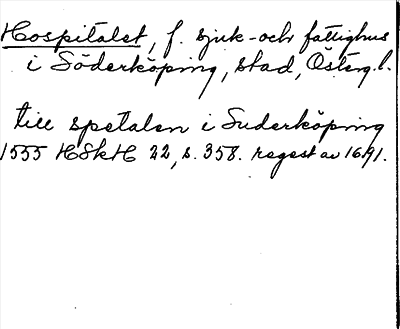 Hospitalet, f. sjuk- och fattighus
i Söderköping, stad, Österg. l.
till spetalen i Suderköping
1555 HSkH 22, s. 358. regest av 1691.